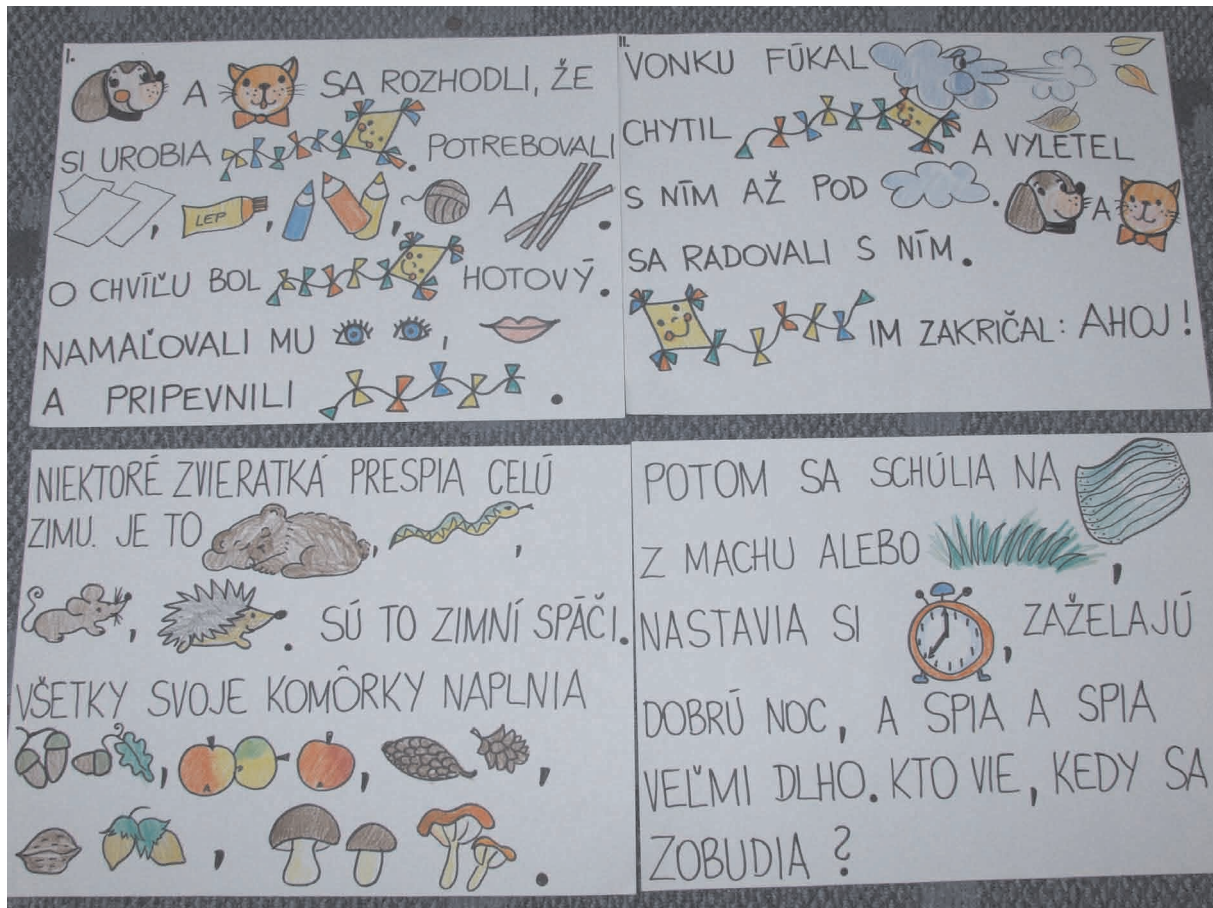 I.
A SA ROZHODLI, ŽE
SI UROBIA . POTREBOVALI
, LEP , , A .
O CHVÍĽU BOL HOTOVÝ.
NAMAĽOVALI MU ,
A PRIPEVNILI .
II.
VONKU FÚKAL
CHYTIL A VYLETEL
S NÍM AŽ POD . A
SA RADOVALI S NÍM.
IM ZAKRIČAL: AHOJ!
NIEKTORÉ ZVIERATKÁ PRESPIA CELÚ
ZIMU. JE TO , ,
, . SÚ TO ZIMNÍ SPÁČI.
VŠETKY SVOJE KOMÔRKY NAPLNIA
, , ,
, .
POTOM SA SCHÚLIA NA
Z MACHU ALEBO ,
NASTAVIA SI , ZAŽELAJÚ
DOBRÚ NOC, A SPIA A SPIA
VEĽMI DLHO. KTO VIE, KEDY SA
ZOBUDIA ?